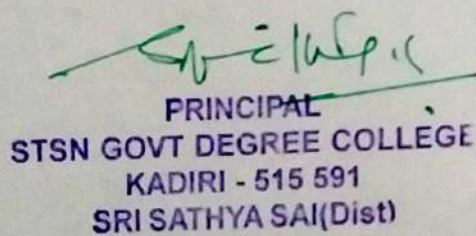 PRINCIPAL
STSN GOVT DEGREE COLLEGE
KADIRI - 515 591
SRI SATHYA SAI(Dist)